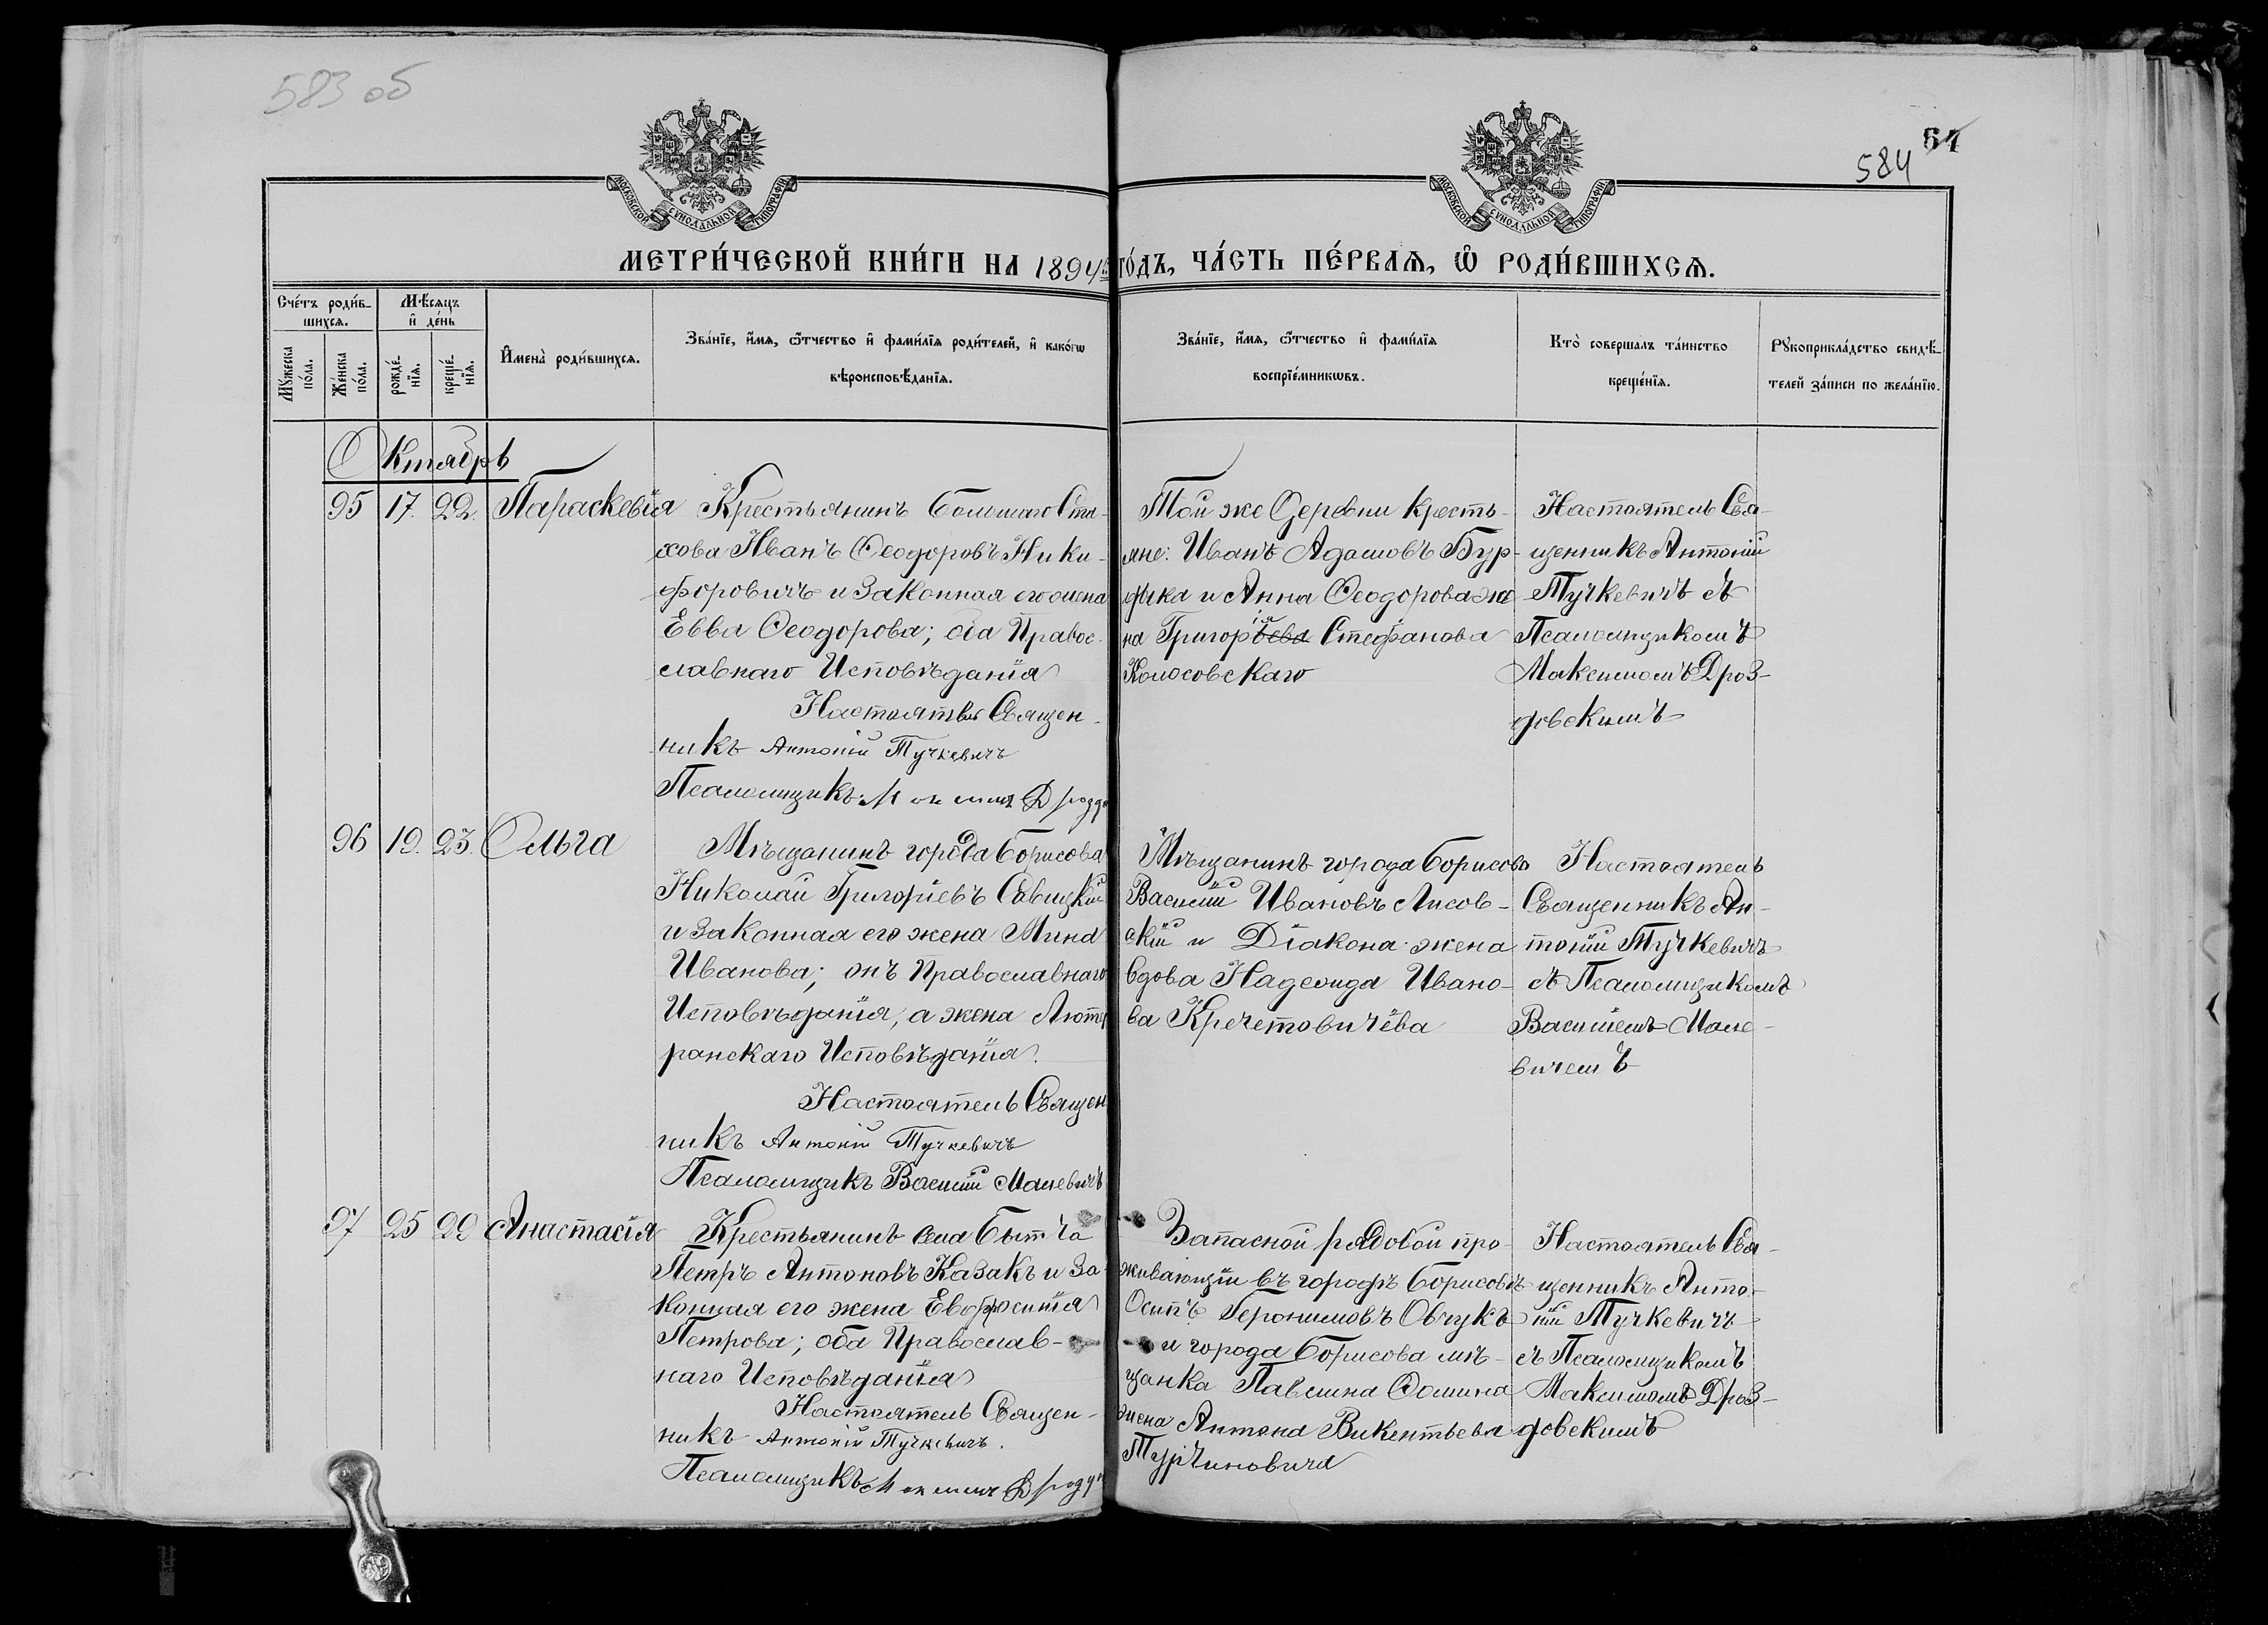 583 об
584
64
МОСКОВСКОЙ СУНОДАЛЬНОЙ ТИПОГРАФІИ
МОСКОВСКОЙ СУНОДАЛЬНОЙ ТИПОГРАФІИ
МЕТРИ́ЧЕСКОЙ КНИ́ГИ НА 1894й ГО́ДЪ, ЧА́СТЬ ПЕ́РВАЯ, Ѡ РОДИ́ВШИХСЯ.
Сче́тъ роди́в-
шихся.
Мꙋ́жеска по́ла.
Же́нска по́ла.
Мѣ́сяцъ
и҆ де́нь
рожде́-
нїя.
креще́-
нїя.
И҆мена̀ роди́вшихся.
Зва́нїе, и҆́мя, ѻ҆́тчество и҆ фами́лїя роди́телей, и҆ како́гѡ
вѣроисповѣ́данїя.
Зва́нїе, и҆́мя, ѻ҆́тчество и҆ фами́лїя
воспрїе́мникѡвъ.
Кто̀ соверша́лъ та́инство
креще́нїя.
Рꙋкоприкла́дство свидѣ́-
телей за́писи по жела́нїю.
Октябрь
95 17. 22. Параскевія
Крестьянинъ Большаго Ста-
хова Иванъ Ѳеодоровъ Ники-
форовичъ и законная его жена
Евва Ѳеодорова; оба Правос-
славнаго Исповѣданія
Настоятель Священ-
никъ Антоній Тучкевичъ
Псаломщикъ Максимъ Дроздо
Той же Деревни кресть-
яне: Иванъ Адамовъ Бур-
и Анна Ѳеодорова же
на Григорія Стефанова
Колосовскаго
Настоятель Свя-
щенникъ Антоній
Тучкевичъ съ
Псаломщикомъ
Максимомъ Дроз-
довскимъ
96 19. 23. Ольга
Мѣщанинъ города Борисова
Николай Григоріевъ Савицкій
и законная его жена Мина
Иванова; онъ Православнаго
Исповѣданія, а жена Люте
ранскаго Исповѣданія.
Настоятель Священ
никъ Антоній Тучкевичъ
Псаломщикъ Василій Малевичъ
Мѣщанинъ города Борисова
Василій Ивановъ Лисов-
скій и Діакона жена
вдова Надежда Ивано-
ва Кречетовичева
Настоятель
Священникъ Ан-
тоній Тучкевичъ
съ Псаломщикомъ
Василіемъ Мале-
вичемъ
97 25 29 Анастасія
Крестьянинъ села Бытча
Петръ Антоновъ Казакъ и за-
конная его жена Евфросинія
Петрова; оба Православ-
наго Исповѣданія
Настоятель Священ-
никъ Антоній Тучкевичъ.
Псаломщикъ Максимъ Дроздо
Запасной рядовой про-
живающій въ городѣ Борисовѣ
Осипъ Геронимовъ Овчукъ
и города Борисова мѣ-
щанка Павлина Ѳомина
жена Антона Викентьева
Турчиновича
Настоятель Свя-
щенникъ Анто-
ній Тучкевичъ
съ Псаломщикомъ
Максимомъ Дроз-
довскимъ